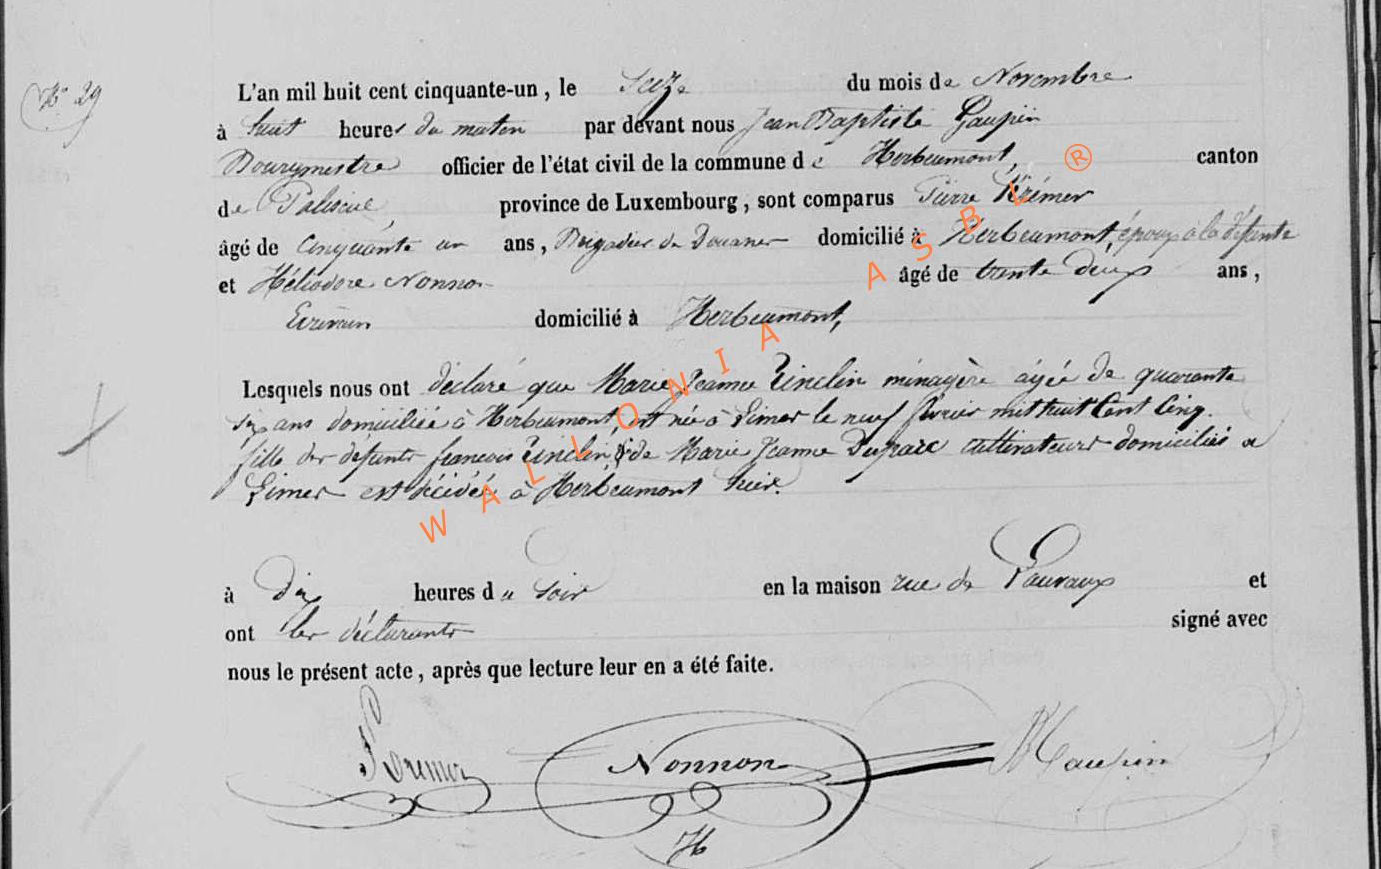 N° 29
L'an mil huit cent cinquante-un, le Seize du mois de Novembre
à huit heures du matin par devant nous Jean Baptiste Gaupin
Bourgmestre officier de l'état civil de la commune de Herbeumont, canton
de Paliseul, province de Luxembourg, sont comparus Pierre Krémer
âgé de cinquante un ans, Brigadier de Douanes domicilié à Herbeumont, époux à la défunte
et Héliodore Nonnon âgé de trente deux ans,
Ecrivain domicilié à Herbeumont,
Lesquels nous ont déclaré que Marie Jeanne Tinclin ménagère âgée de quarante
six ans domiciliée à Herbeumont, est née à Limes le neuf février mil huit Cent Cinq.
fille des défunts francois Tinclin & de Marie Jeanne Duparc cultivateurs domiciliés à
Limes est décédée à Herbeumont hier.
à Dix heures du Soir en la maison rue de Pauvaux et
ont les déclarants signé avec
nous le présent acte, après que lecture leur en a été faite.
Kremer Nonnon Gaupin
H
WALLONIA ASBL ®